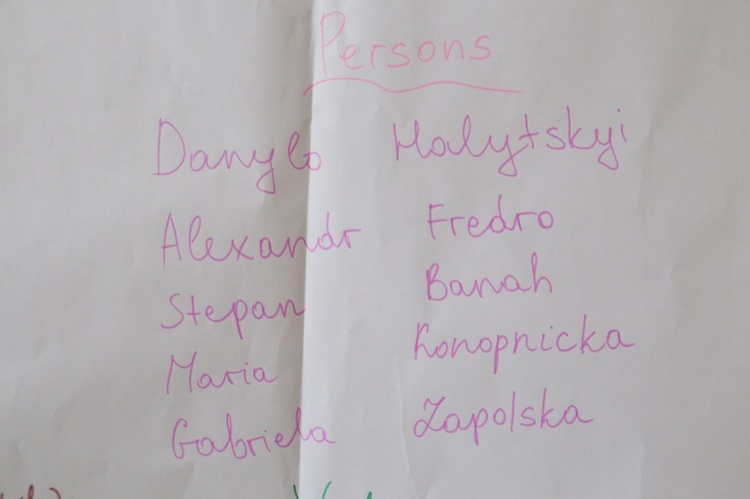 Persons
Danylo Halytskyi
Alexandr Fredro
Stepan Banah
Maria Konopnicka
Gabriela Zapolska